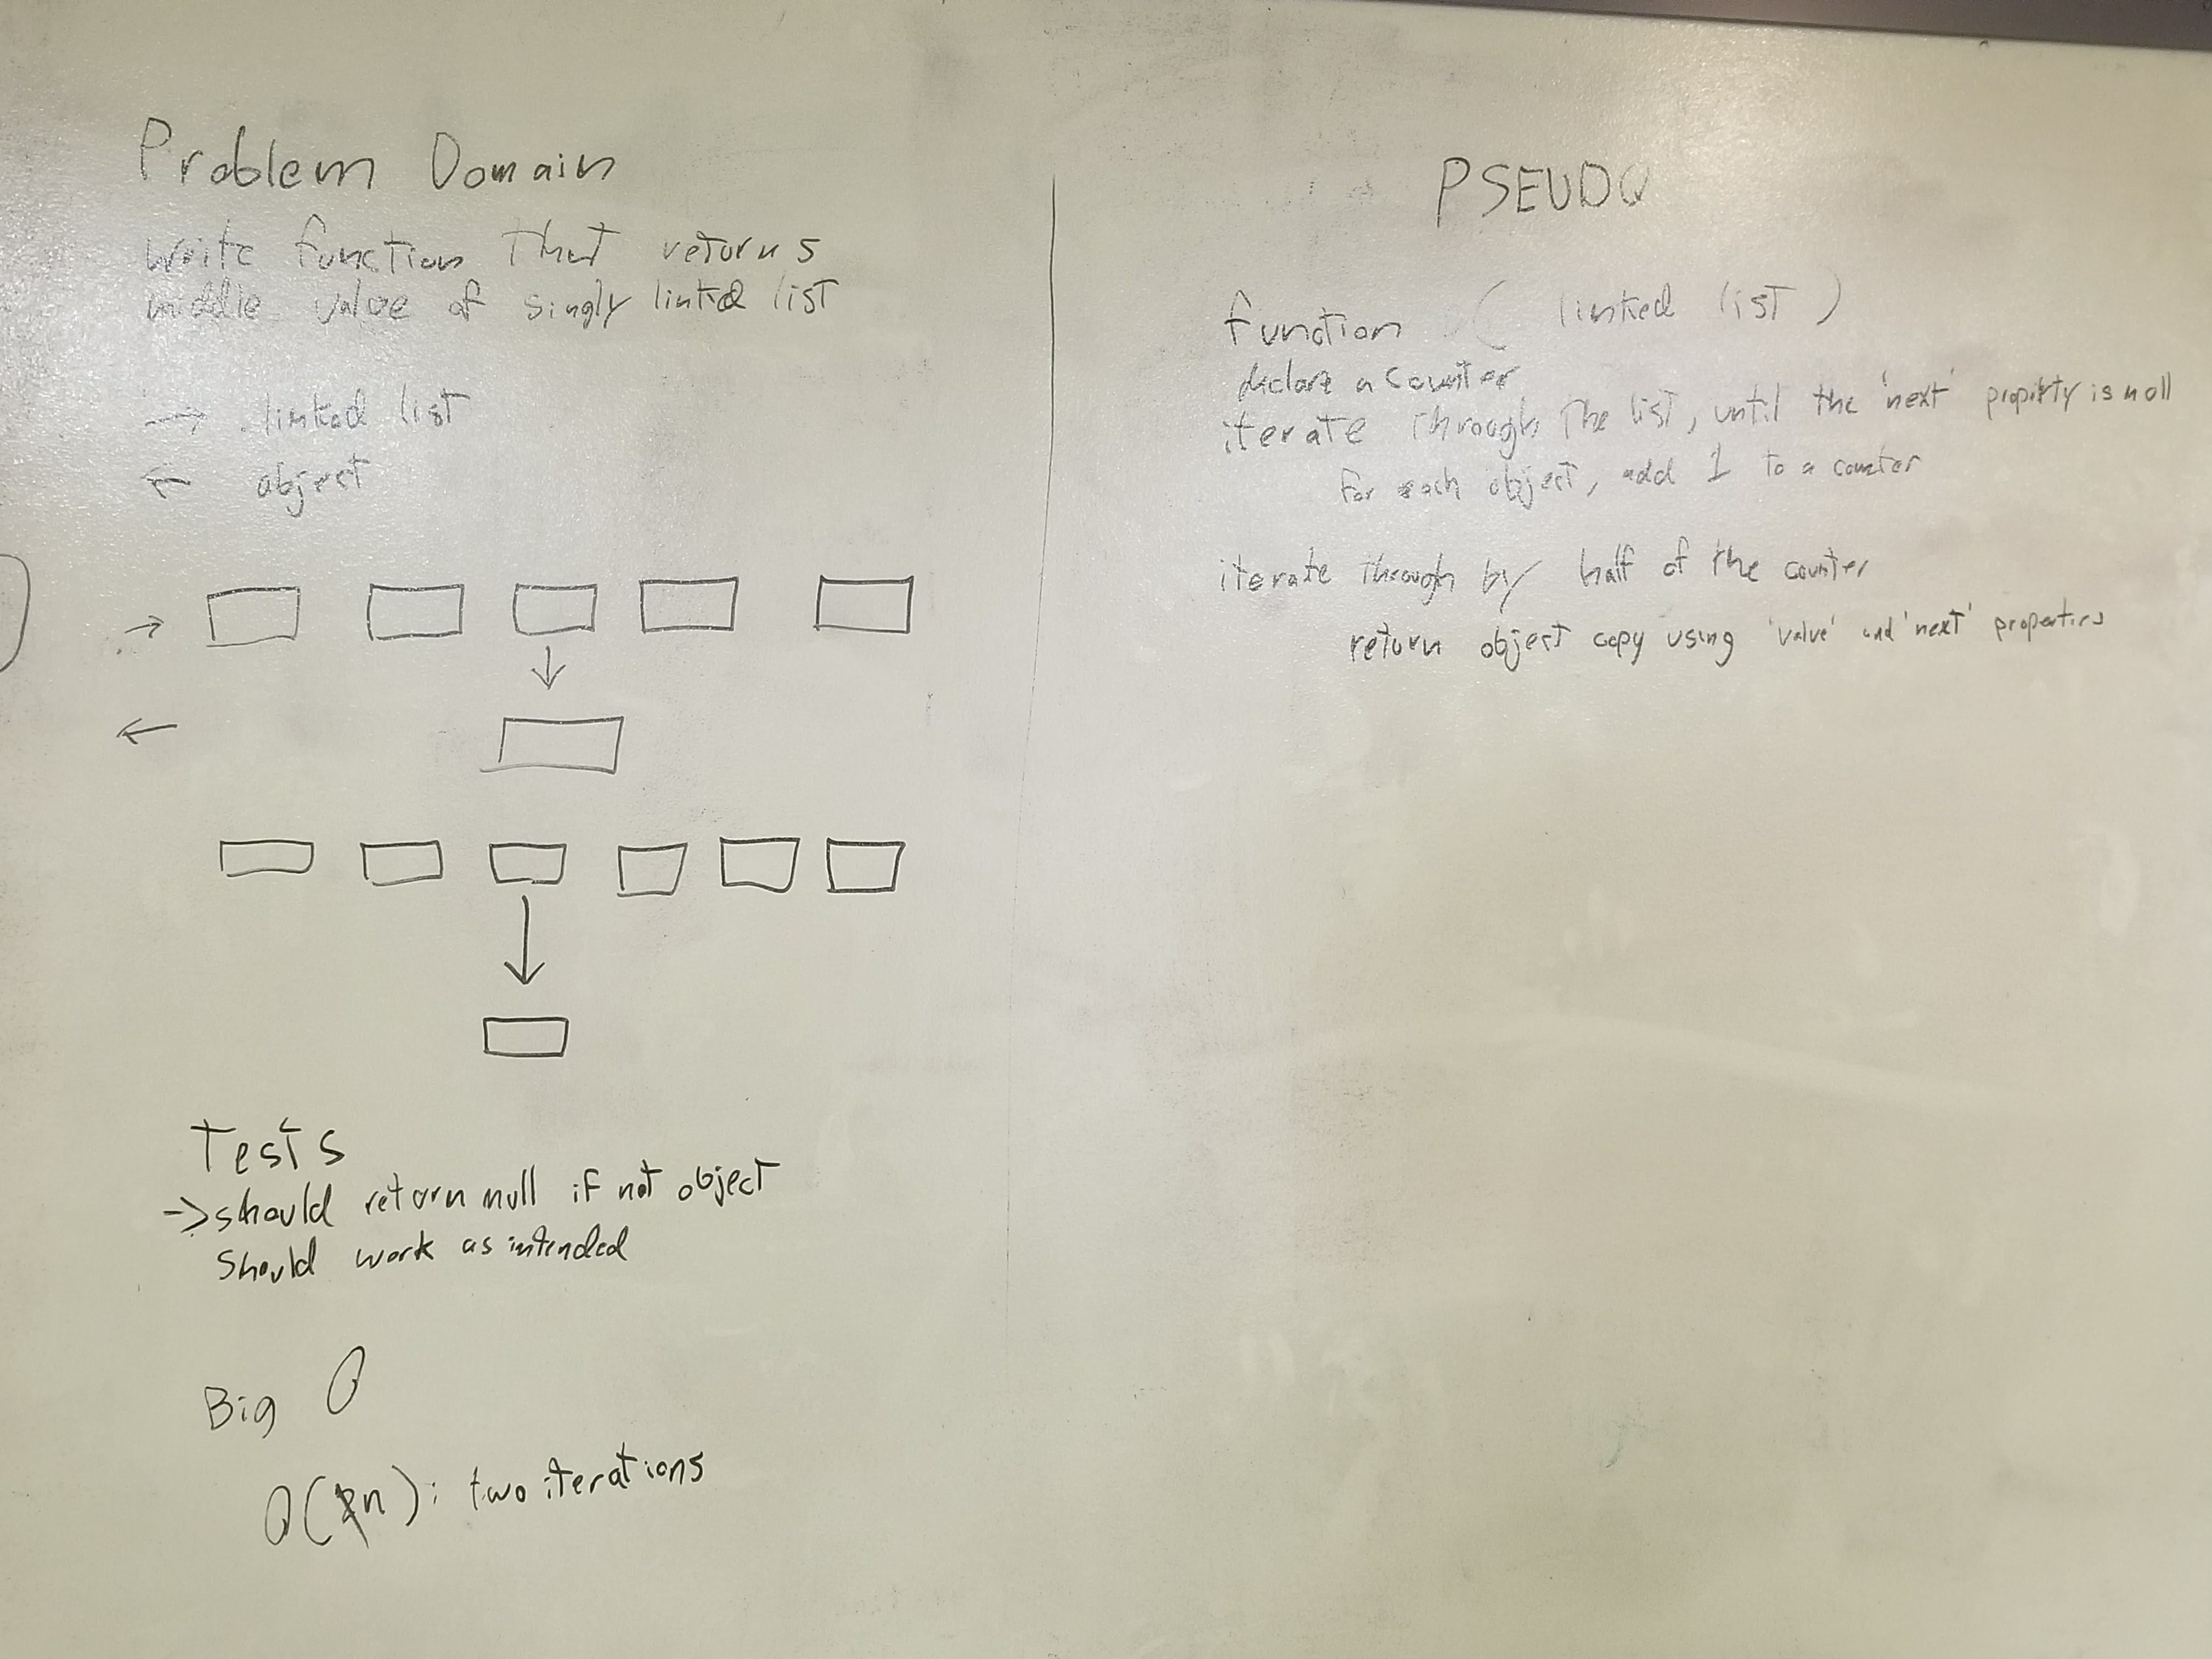 Problem Domain
write function that returns
middle value of singly linked list
→ linked list
← object
→
←
Tests
→ should return null if not object
should work as intended
Big O
O(n): two iterations
PSEUDO
function ( linked list )
declare a counter
iterate through the list, until the 'next' property is null
for each object, add 1 to a counter
iterate through by half of the counter
return object copy using 'value' and 'next' properties